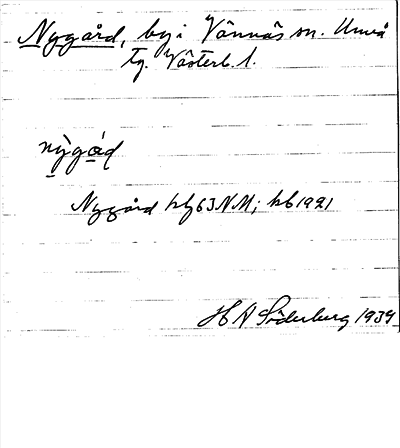 Nygård, by i Vännäs sn. Umeå
tg. Västerb. l.
nỳgád
Nygård hfl 63 NM; kb 1921
H N Söderberg 1939